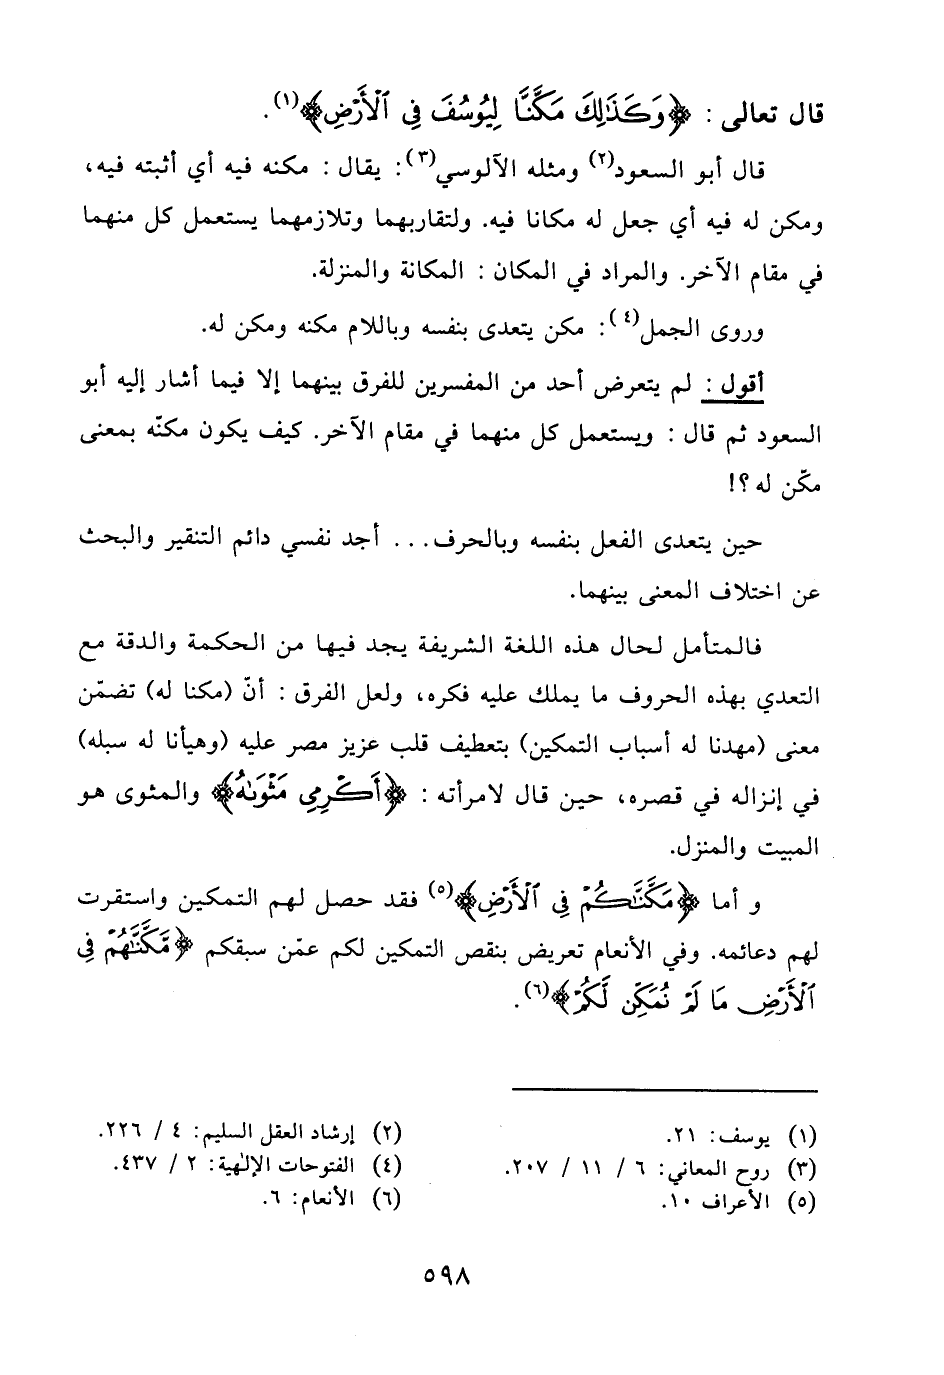 قال تعالى : ﴿وَكَذَٰلِكَ مَكَّنَّا لِيُوسُفَ فِي ٱلْأَرْضِ﴾(١).
قال أبو السعود(٢) ومثله الآلوسي(٣): يقال : مكنه فيه أي أثبته فيه،
ومكن له فيه أي جعل له مكانا فيه. ولتقاربهما وتلازمهما يستعمل كل منهما
في مقام الآخر. والمراد في المكان : المكانة والمنزلة.
وروى الجمل(٤): مكن يتعدى بنفسه وباللام مكنه ومكن له.
أقول : لم يتعرض أحد من المفسرين للفرق بينهما إلا فيما أشار إليه أبو
السعود ثم قال : ويستعمل كل منهما في مقام الآخر. كيف يكون مكنّه بمعنى
مكّن له ؟!
حين يتعدى الفعل بنفسه وبالحرف... أجد نفسي دائم التنقير والبحث
عن اختلاف المعنى بينهما.
فالمتأمل لحال هذه اللغة الشريفة يجد فيها من الحكمة والدقة مع
التعدي بهذه الحروف ما يملك عليه فكره، ولعل الفرق : أنّ (مكنا له) تضمّن
معنى (مهدنا له أسباب التمكين) بتعطيف قلب عزيز مصر عليه (وهيأنا له سبله)
في إنزاله في قصره، حين قال لامرأته : ﴿أَكْرِمِي مَثْوَىٰهُ﴾ والمثوى هو
المبيت والمنزل.
و أما ﴿مَكَّنَّٰكُمْ فِي ٱلْأَرْضِ﴾(٥) فقد حصل لهم التمكين واستقرت
لهم دعائمه. وفي الأنعام تعريض بنقص التمكين لكم عمّن سبقكم ﴿مَّكَّنَّٰهُمْ فِي
ٱلْأَرْضِ مَا لَمْ نُمَكِّن لَّكُمْ﴾(٦).
(١) يوسف: ٢١.
(٢) إرشاد العقل السليم: ٤ / ٢٢٦.
(٣) روح المعاني: ٦ / ١١ / ٢٠٧.
(٤) الفتوحات الإلٰهية: ٢ / ٤٣٧.
(٥) الأعراف ١٠.
(٦) الأنعام: ٦.
٥٩٨